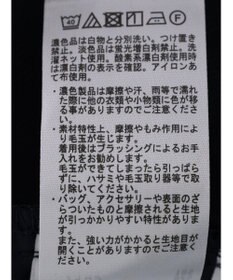 濃色品は白物と分別洗い。つけ置き
禁止。淡色品は蛍光増白剤禁止。洗
濯ネット使用。酸素系漂白剤使用時
は漂白剤の表示を確認。アイロンあ
て布使用。
・濃色製品は摩擦や汗、雨等で濡れ
た際に他の衣類や小物類に色が移
る事がありますのでご注意くださ
い。
・素材特性上、摩擦やもみ作用によ
り毛玉が生じます。
着用後はブラッシングによるお手
入れをお勧めします。
毛玉ができてしまったら引っぱら
ずに、ハサミや毛玉取り器等で取
り除いてください。
・バッグ、アクセサリーや表面のざ
らついたものと摩擦されると生地
が引っかかりやすい特性がありま
す。
また、強い力がかかると生地目が
開くことがありますのでご注意く
ださい。